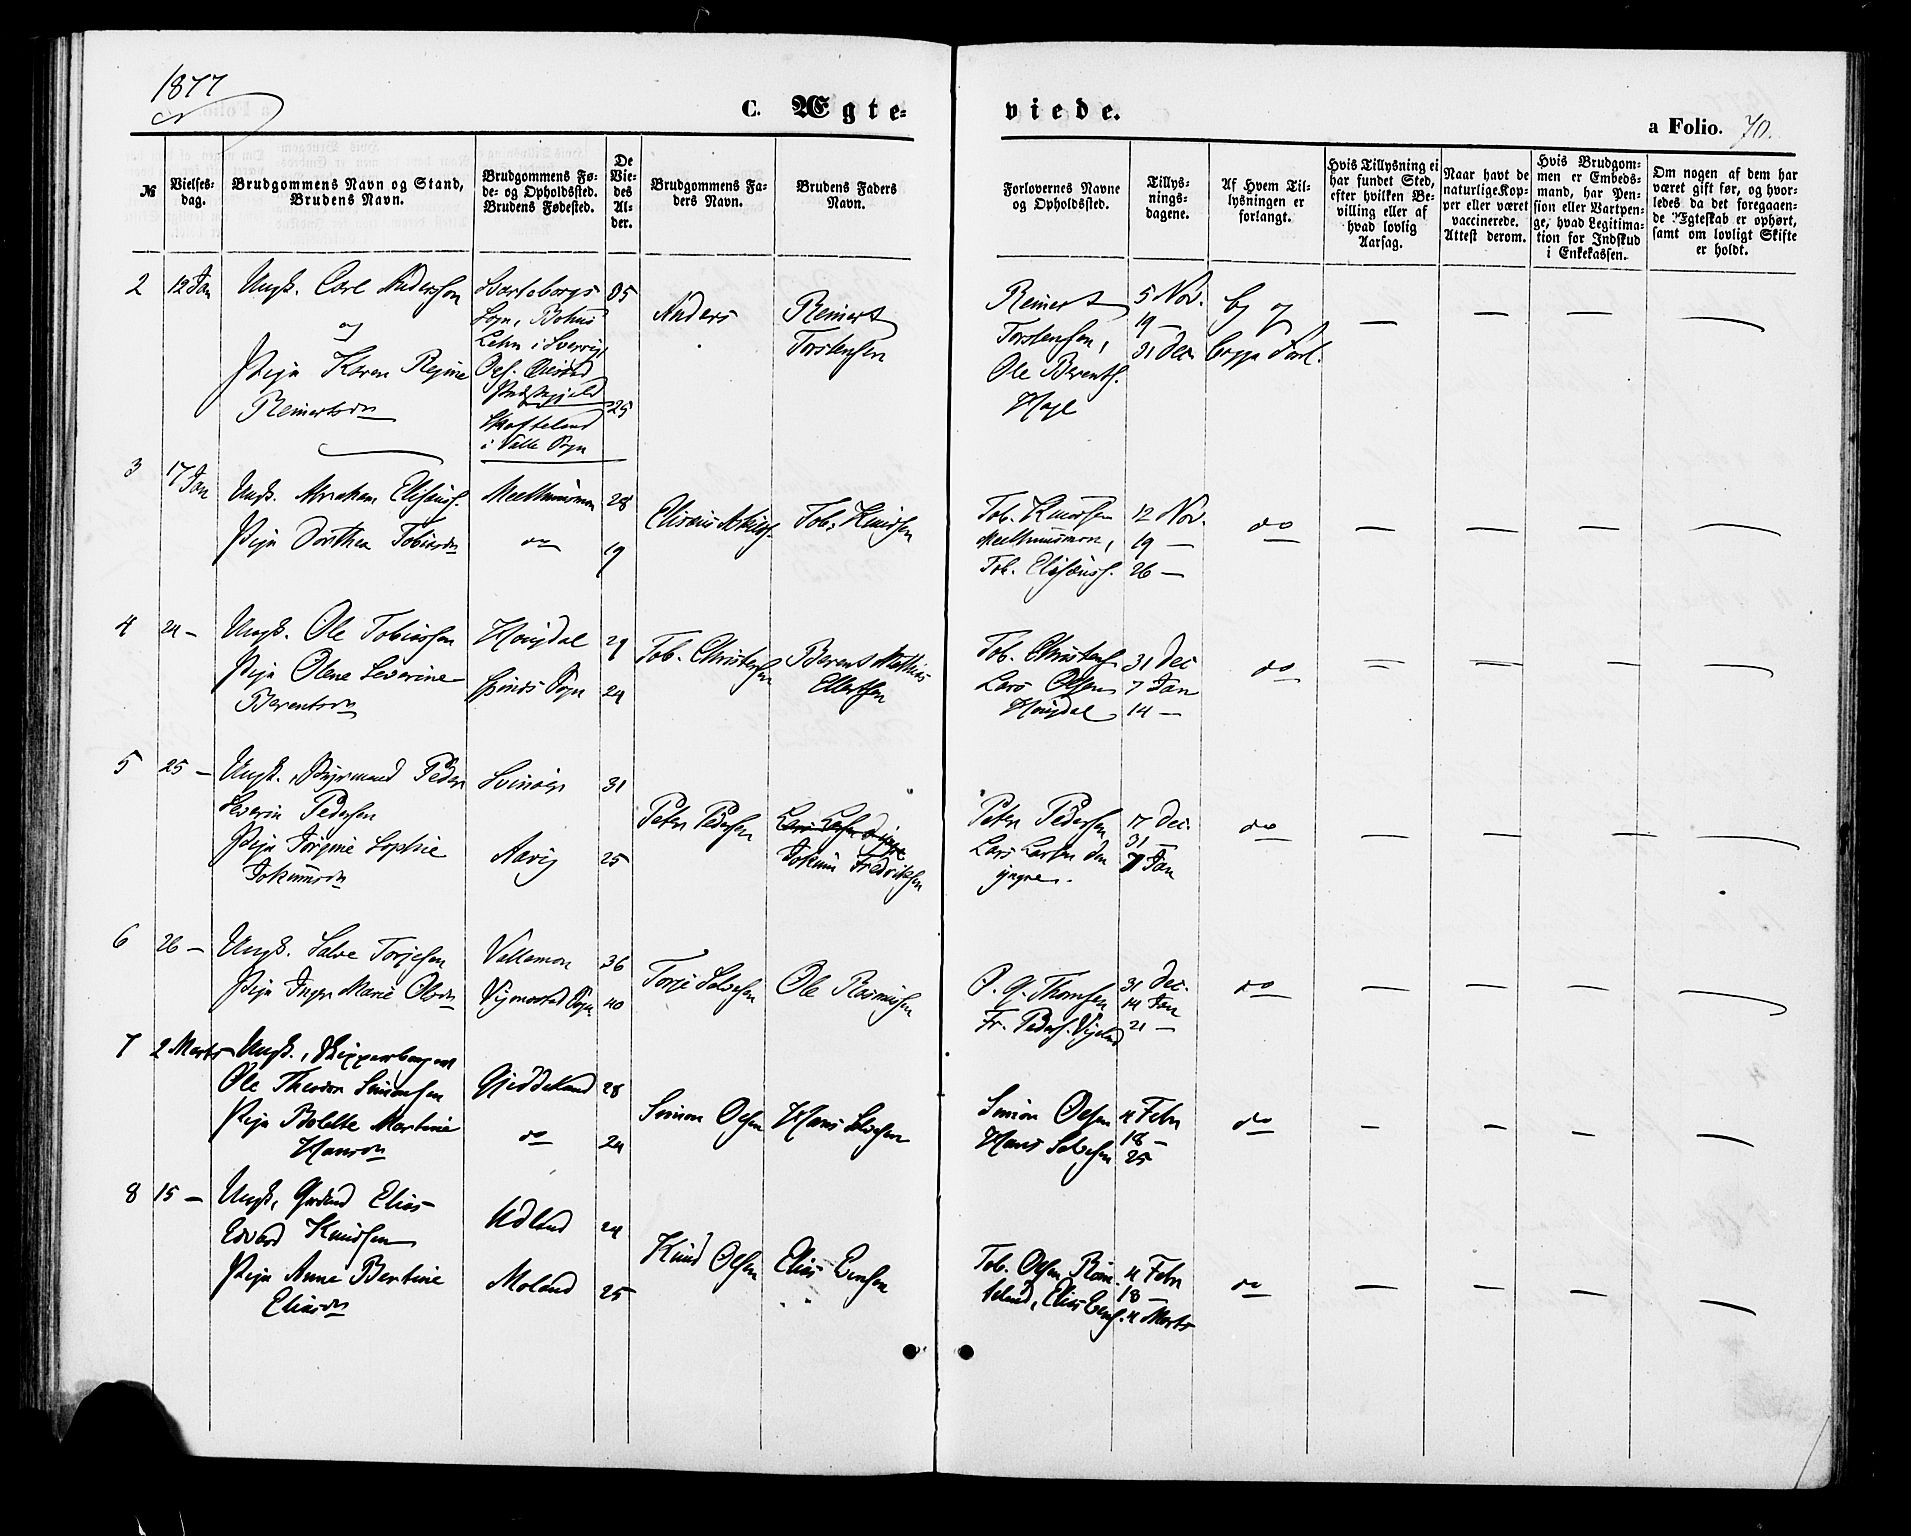 1877
C. Ægte-
viede.
a Folio. 70.
№
Vielses-
dag.
Brudgommens Navn og Stand,
Brudens Navn.
Brudgommens Fø-
de- og Opholdssted.
Brudens Fødested.
De
Vie-
des
Al-
der.
Brudgommens Fa-
ders Navn.
Brudens Faders
Navn.
Forlovernes Navne
og Opholdssted.
Tillys-
nings-
dagene.
Af Hvem Til-
lysningen er
forlangt.
Hvis Tillysning ei
har fundet Sted,
efter hvilken Be-
villing eller af
hvad lovlig
Aarsag.
Naar havt de
naturlige Kop-
per eller været
vaccinerede.
Attest derom.
Hvis Brudgom-
men er Embeds-
mand, har Pen-
sion eller Vartpen-
ge, hvad Legitima-
tion for Indskud
i Enkekassen.
Om nogen af dem har
været gift før, og hvor-
ledes da det foregaaen-
de Ægteskab er ophørt,
samt om lovligt Skifte
er holdt.
2
12 Jan
Ungk. Carl Andersson
og
Pige Karen Regine
Reinertsdn
Sogn, Bohus
Lehn i Sverrig,
i Valle Sogn
25
Anders
Reinert
Torstensen
Reinert
Torstensen,
Ole Berents.
5 Nov.
19 —
31 Dec
3
17 Jan
Ungk. Abraham Elisæuss.
Pige Dorthea Tobiasdn
do
28
19
Tob. Knudsen
Tob. Knudsen
Tob. Elisæuss.
12 Nov.
19 —
26 —
do
4
24 —
Ungk. Ole Tobiassen
Pige Olene Severine
Berentsdn
Houpdal
Spinds Sogn
29
24
Tob. Christensen
Berent Mathias
Ellertsen
Tob. Christens.
Lars Olsen
Houpdal
31 Dec
7 Jan
14 —
do
5
25 —
Ungk., Styrmand Peder
Severin Pedersen
Pige Jørgine Sophie
Jokumsdn
Svinøer
Aavig
31
25
Peter Pedersen
Jokum Fredriksen
Peter Pedersen
Lars Larsen den
yngre.
17 Dec.
31 —
7 Jan
do
6
26 —
Ungk. Salve Torjesen
Pige Inger Marie Olsdn
Vallemon
Vigmostad Sogn
36
40
Torje Salvesen
Ole Rasmusen
O. G. Thomsen
Fr. Peders. Vigeland
31 Dec.
14 Jan
21 —
do
7
2 Marts
Ungk., Skipperborger
Ole Theodor Simonsen
Pige Bolette Martine
Hansdn
Gjeddeland
do
28
24
Simon Olsen
Hans Salvesen
Simon Olsen
Hans Salvesen
4 Febr
18 —
25
do
8
15 —
Ungk., Gaardmd Elias
Edvard Knudsen
Pige Anne Bertine
Eliasdn
Udland
Moland
24
25
Knud Olsen
Elias Evensen
Tob. Olsen Rom-
seland, Elias Evens.
4 Febr
18 —
4 Marts
do